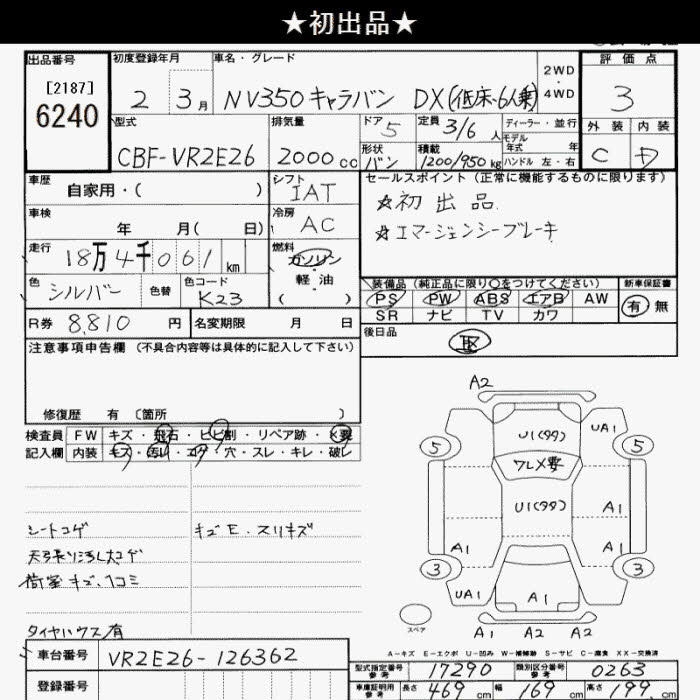 ★初出品★
出品番号 初度登録年月 車名・グレード 2WD・4WD 評価点
[2187]
6240
2 3月 NV350キャラバン DX(低床・6人乗) 3
型式 排気量 ドア 定員 ディーラー・並行 外装 内装
CBF-VR2E26 2000cc 5 3/6人 モデル年式 年 C D
形状 積載 ハンドル 左・右
バン 1200/950kg
車歴 シフト セールスポイント(正常に機能するものに限ります)
自家用・( ) IAT
☆初出品
車検 年 月( 日) 冷房 AC
☆エマージェンシーブレーキ
走行 18万4千061km 燃料 ガソリン・軽油( )
色 シルバー 色替 色コード K23
装備品(純正品に限り○をつけてください) 新車保証書
PS PW ABS エアB AW 有 無
SR ナビ TV カワ
R券 8,810円 名変期限 月 日
後日品 取
注意事項申告欄 (不具合内容等は具体的に記入して下さい)
修復歴 有 〔箇所 〕
検査員 FW キズ・飛石・ヒビ割・リペア跡・X要
記入欄 内装 キズ・汚レ・コゲ・穴・スレ・キレ・破レ
シートコゲ キズE・スリキズ
天張り汚レ大コゲ
荷室キズ、凹コミ
タイヤハウス有
A2
U1(99) UA1
5 5
ワレX要
U1(99) A1
A1 A1
3 3
UA1 A1 UA1
スペア A1 A2 A2
A-キズ E-エクボ U-凹み W-補修跡 S-サビ C-腐食 XX-交換済
車台番号 VR2E26-126362
型式指定番号参考 17290 類別区分番号参考 0263
登録番号 車庫証明用参考 長さ 469cm 幅 169cm 高さ 199cm